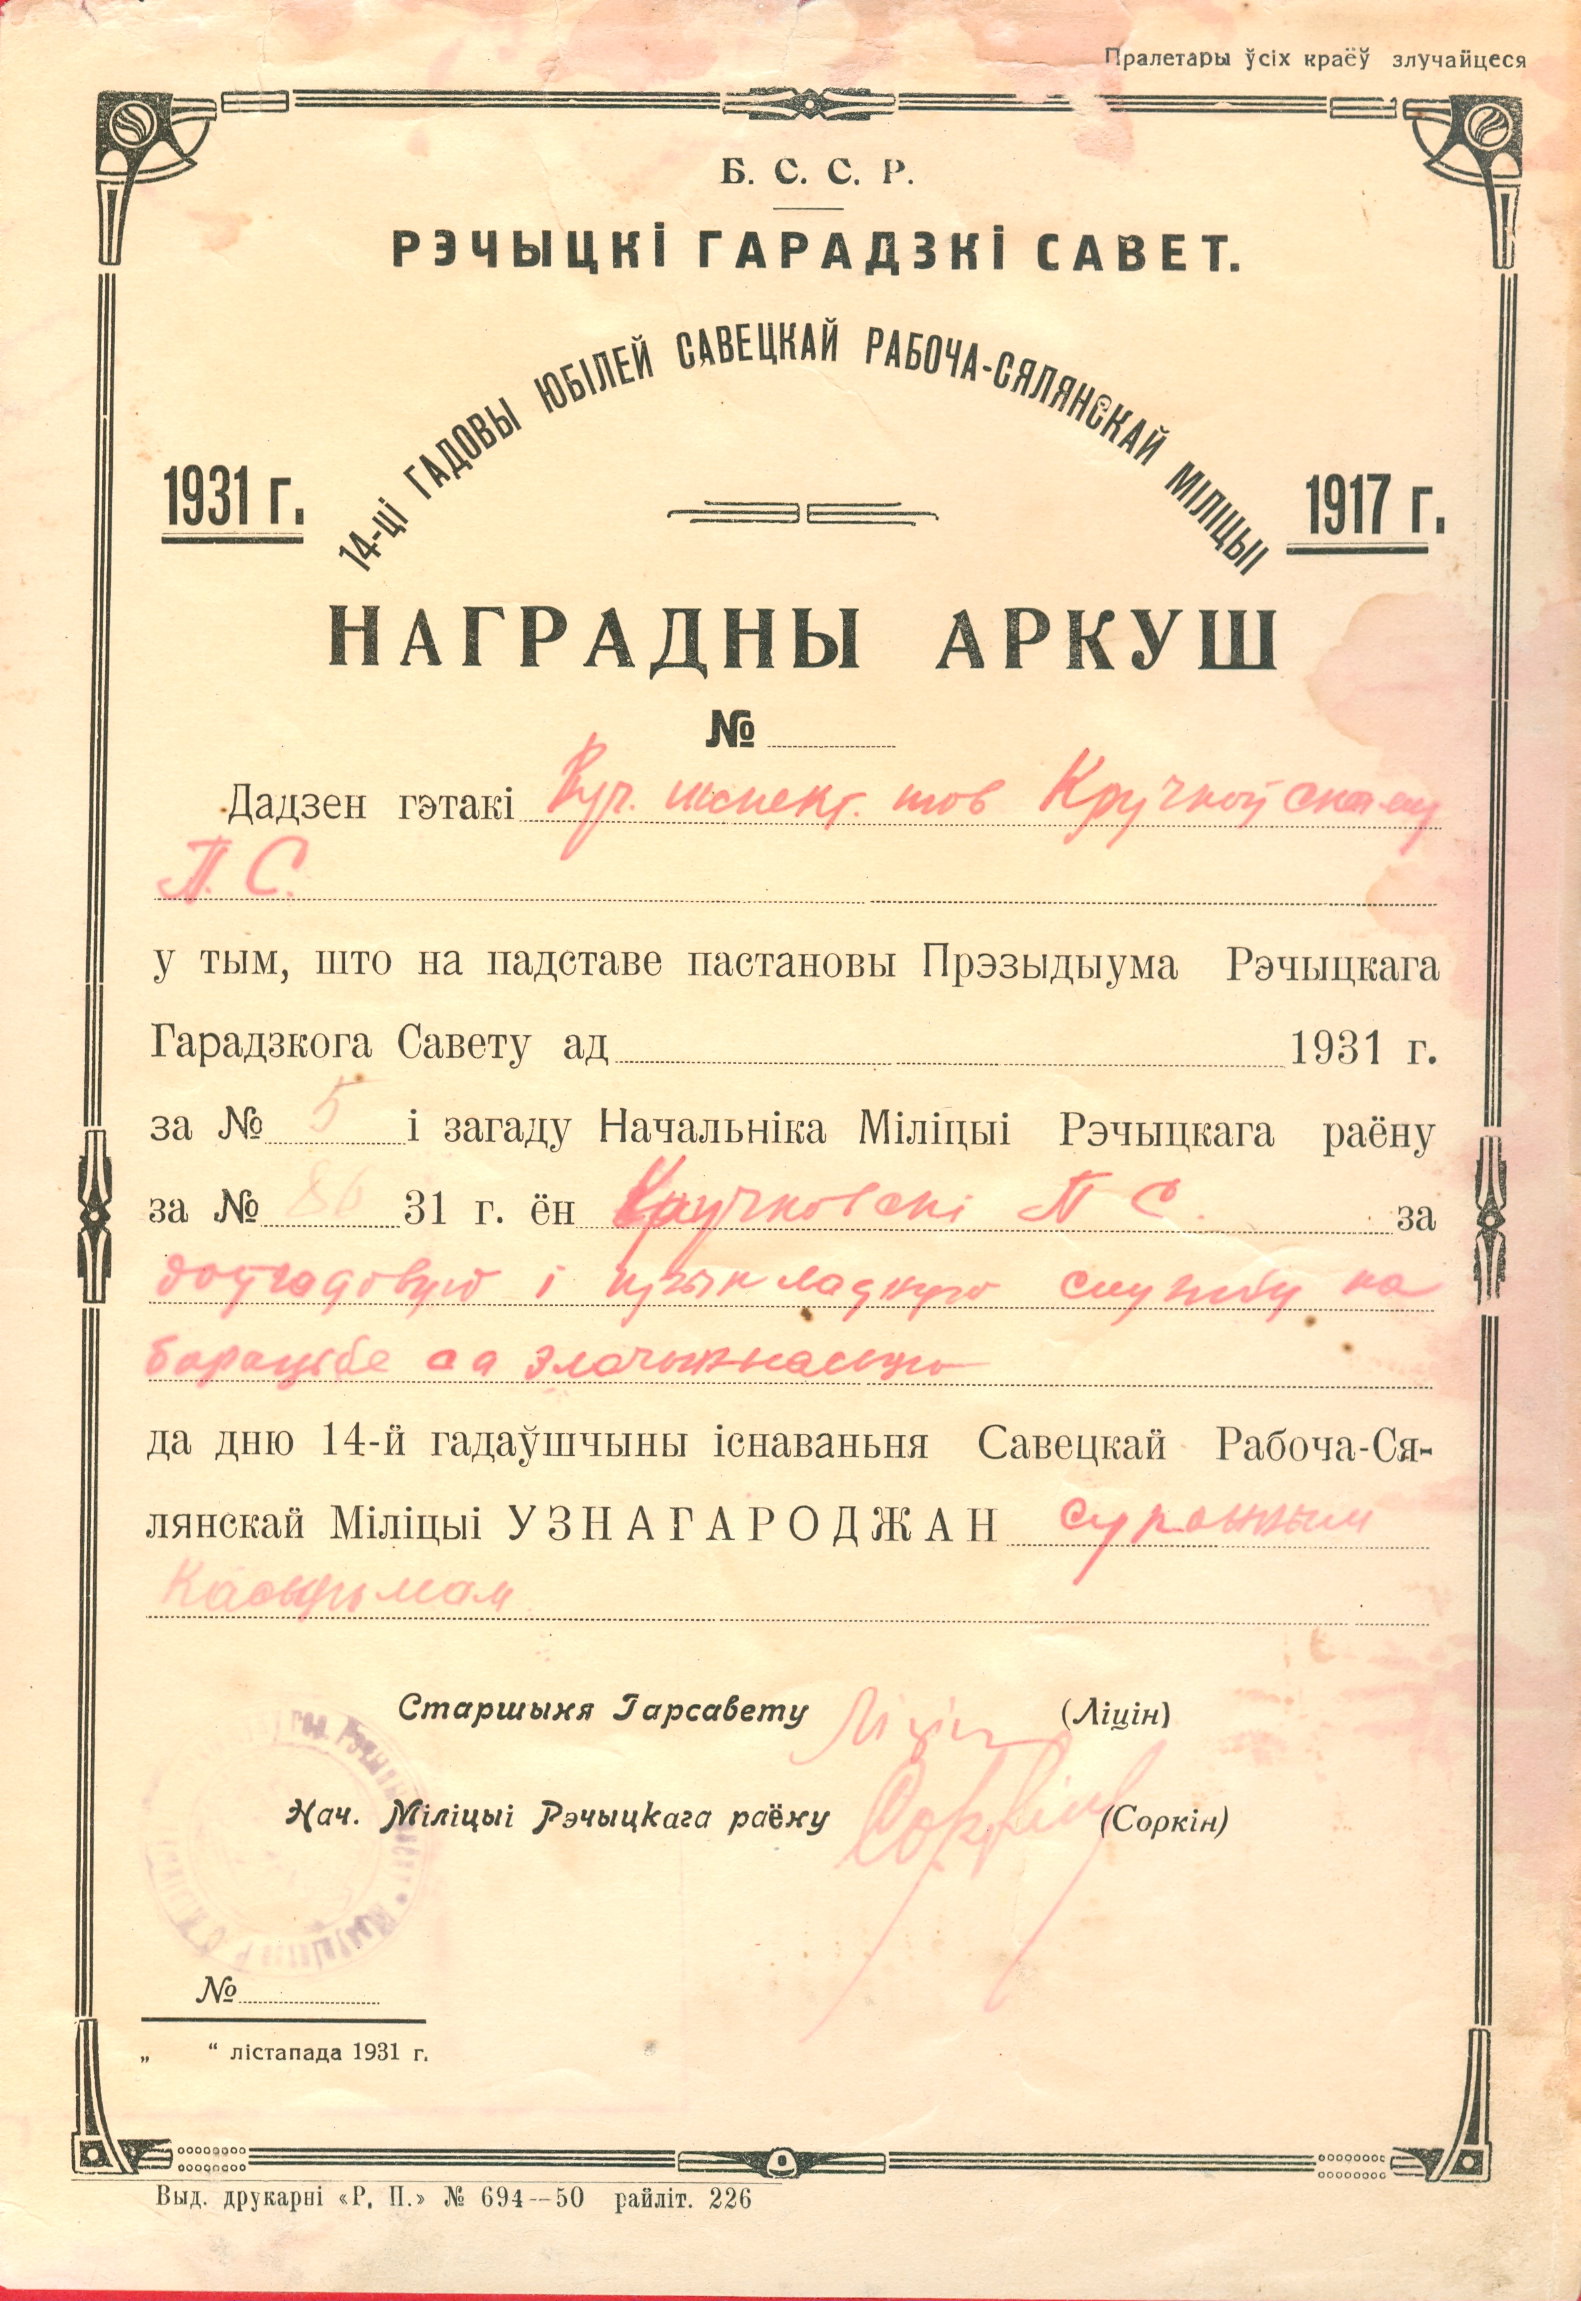 Пралетары ўсіх краёў злучайцеся
Б. С. С. Р.
РЭЧЫЦКІ ГАРАДЗКІ САВЕТ.
14-ЦІ ГАДОВЫ ЮБІЛЕЙ САВЕЦКАЙ РАБОЧА-СЯЛЯНСКАЙ МІЛІЦЫІ
1931 г. 1917 г.
НАГРАДНЫ АРКУШ
№
Дадзен гэтакі інспект. тов Кручкоўскаму
П. С.
у тым, што на падставе пастановы Прэзыдыума Рэчыцкага
Гарадзкога Савету ад 1931 г.
за № 5 і загаду Начальніка Міліцыі Рэчыцкага раёну
за № 86 31 г. ён Кручковскі П С. за
доўгадовую і прыкладную службу на
барацьбе са злачыннасцю
да дню 14-й гадаўшчыны існаваньня Савецкай Рабоча-Ся-
лянскай Міліцыі УЗНАГАРОДЖАН суконным
Касьцюмам
Старшыня Гарсавету Ліцін (Ліцін)
Нач. Міліцыі Рэчыцкага раёну Соркін (Соркін)
№
„ “ лістапада 1931 г.
Выд. друкарні «Р. П.» № 694—50 райліт. 226